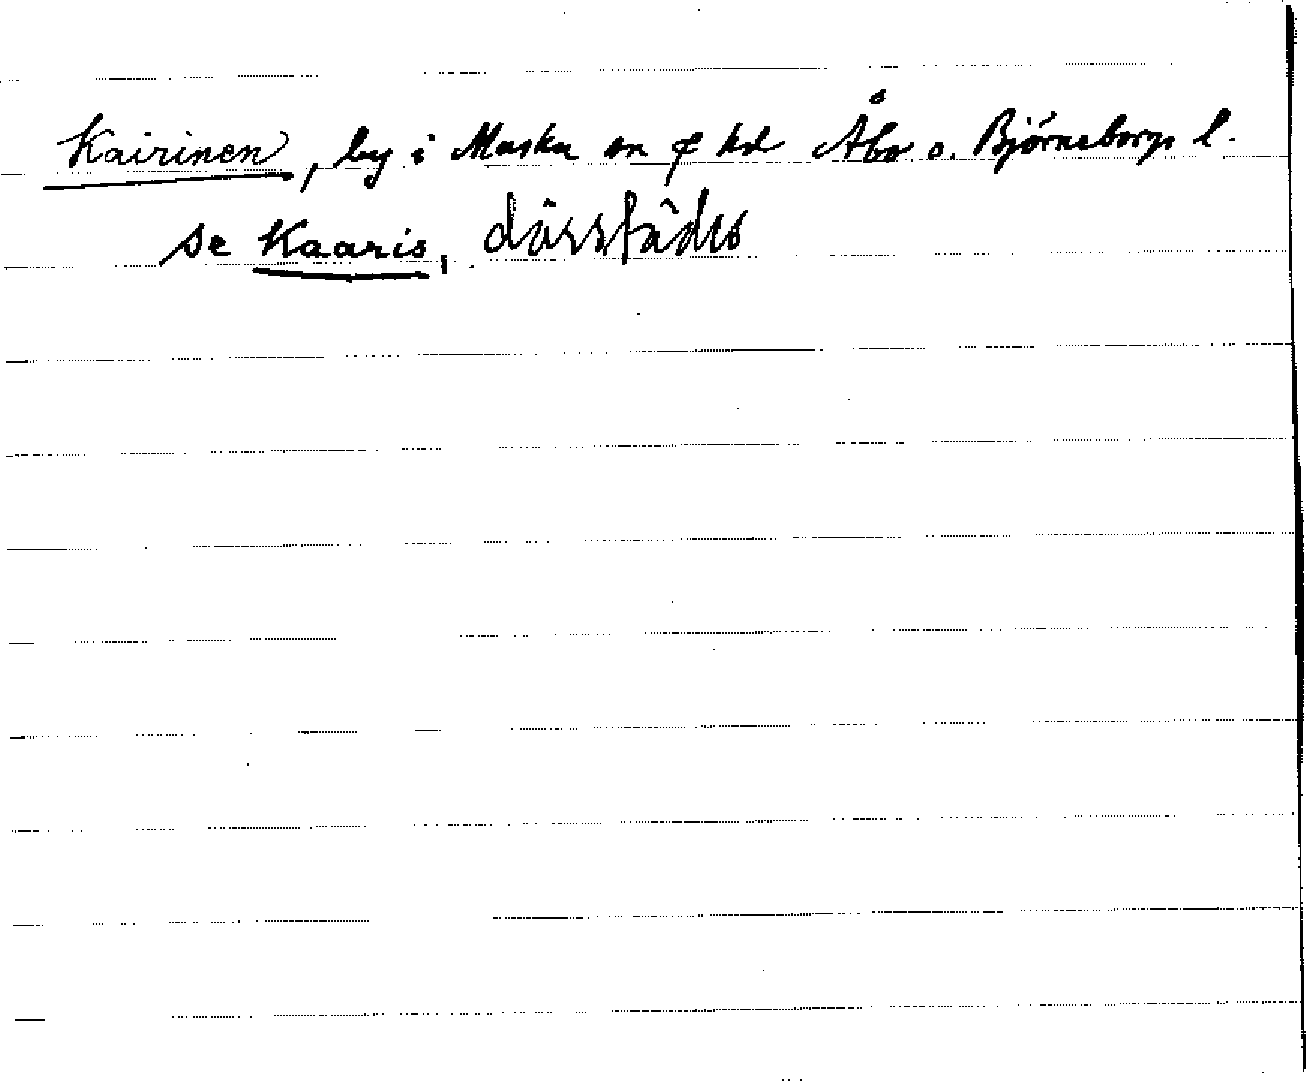 Kairinen, by i Masku sn o hd Åbo o. Björneborgs l.
se Kaaris, därstädes